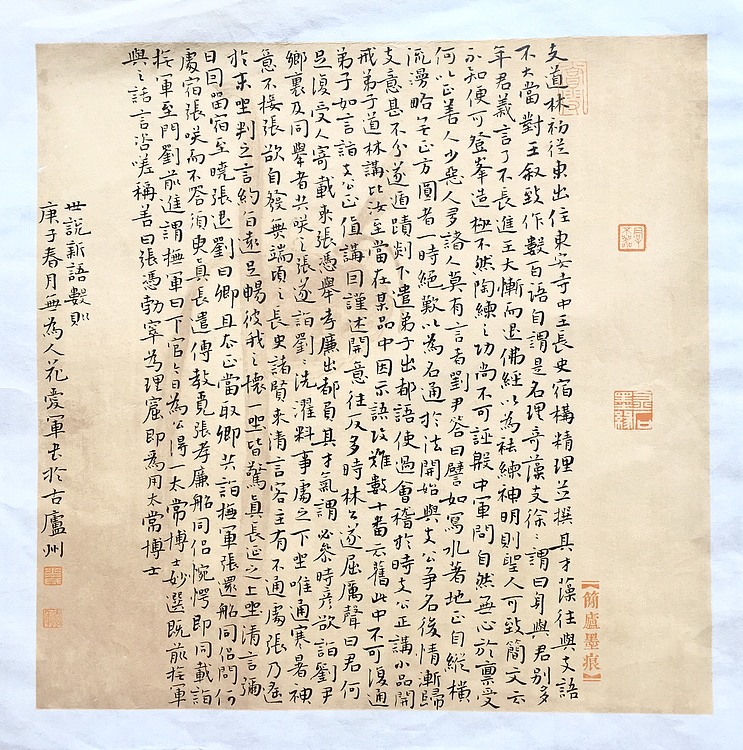 支道林初從東出住東安寺中王長史宿構精理並撰其才藻往與支語
不大當對王叙致作數百語自謂是名理奇藻支徐〻謂曰身與君別多
年君義言了不長進王大慚而退佛經以為祛練神明則聖人可致簡文云
不知便可登峯造極不然陶練之功尚不可誣殷中軍問自然無心於禀受
何以正善人少惡人多諸人莫有言者劉尹答曰譬如寫水著地正自縱橫
流漫略無正方圓者一時絕歎以為名通於法開始與支公爭名後情漸歸
支意甚不分遂遁蹟剡下遣弟子出都語使過會稽於時支公正講小品開
戒弟子道林講比汝至當在某品中因示語攻難數十番云舊此中不可復通
弟子如言詣支公正值講因謹述開意往反多時林公遂屈厲聲曰君何
足復受人寄載來張憑舉孝廉出都負其才氣謂必參時彥欲詣劉尹
鄉裏及同舉者共咲之張遂詣劉〻洗濯料事處之下坐唯通寒暑神
意不接張欲自發無端頃之長史諸賢來清言客主有不通處張乃遙
於末坐判之言約旨遠足暢彼我之懷一坐皆驚真長延之上坐清言彌
日因留宿至曉張退劉曰卿且去正當取卿共詣撫軍張還船同侶問何
處宿張咲而不答須臾真長遣傳教覓張孝廉船同侶惋愕即同載詣
撫軍至門劉前進謂撫軍曰下官今日為公得一太常博士妙選既前撫軍
與之話言咨嗟稱善曰張憑勃窣為理窟即為用太常博士
世說新語數則
庚子春月無為人花愛軍書於古廬州
【簡廬墨痕】